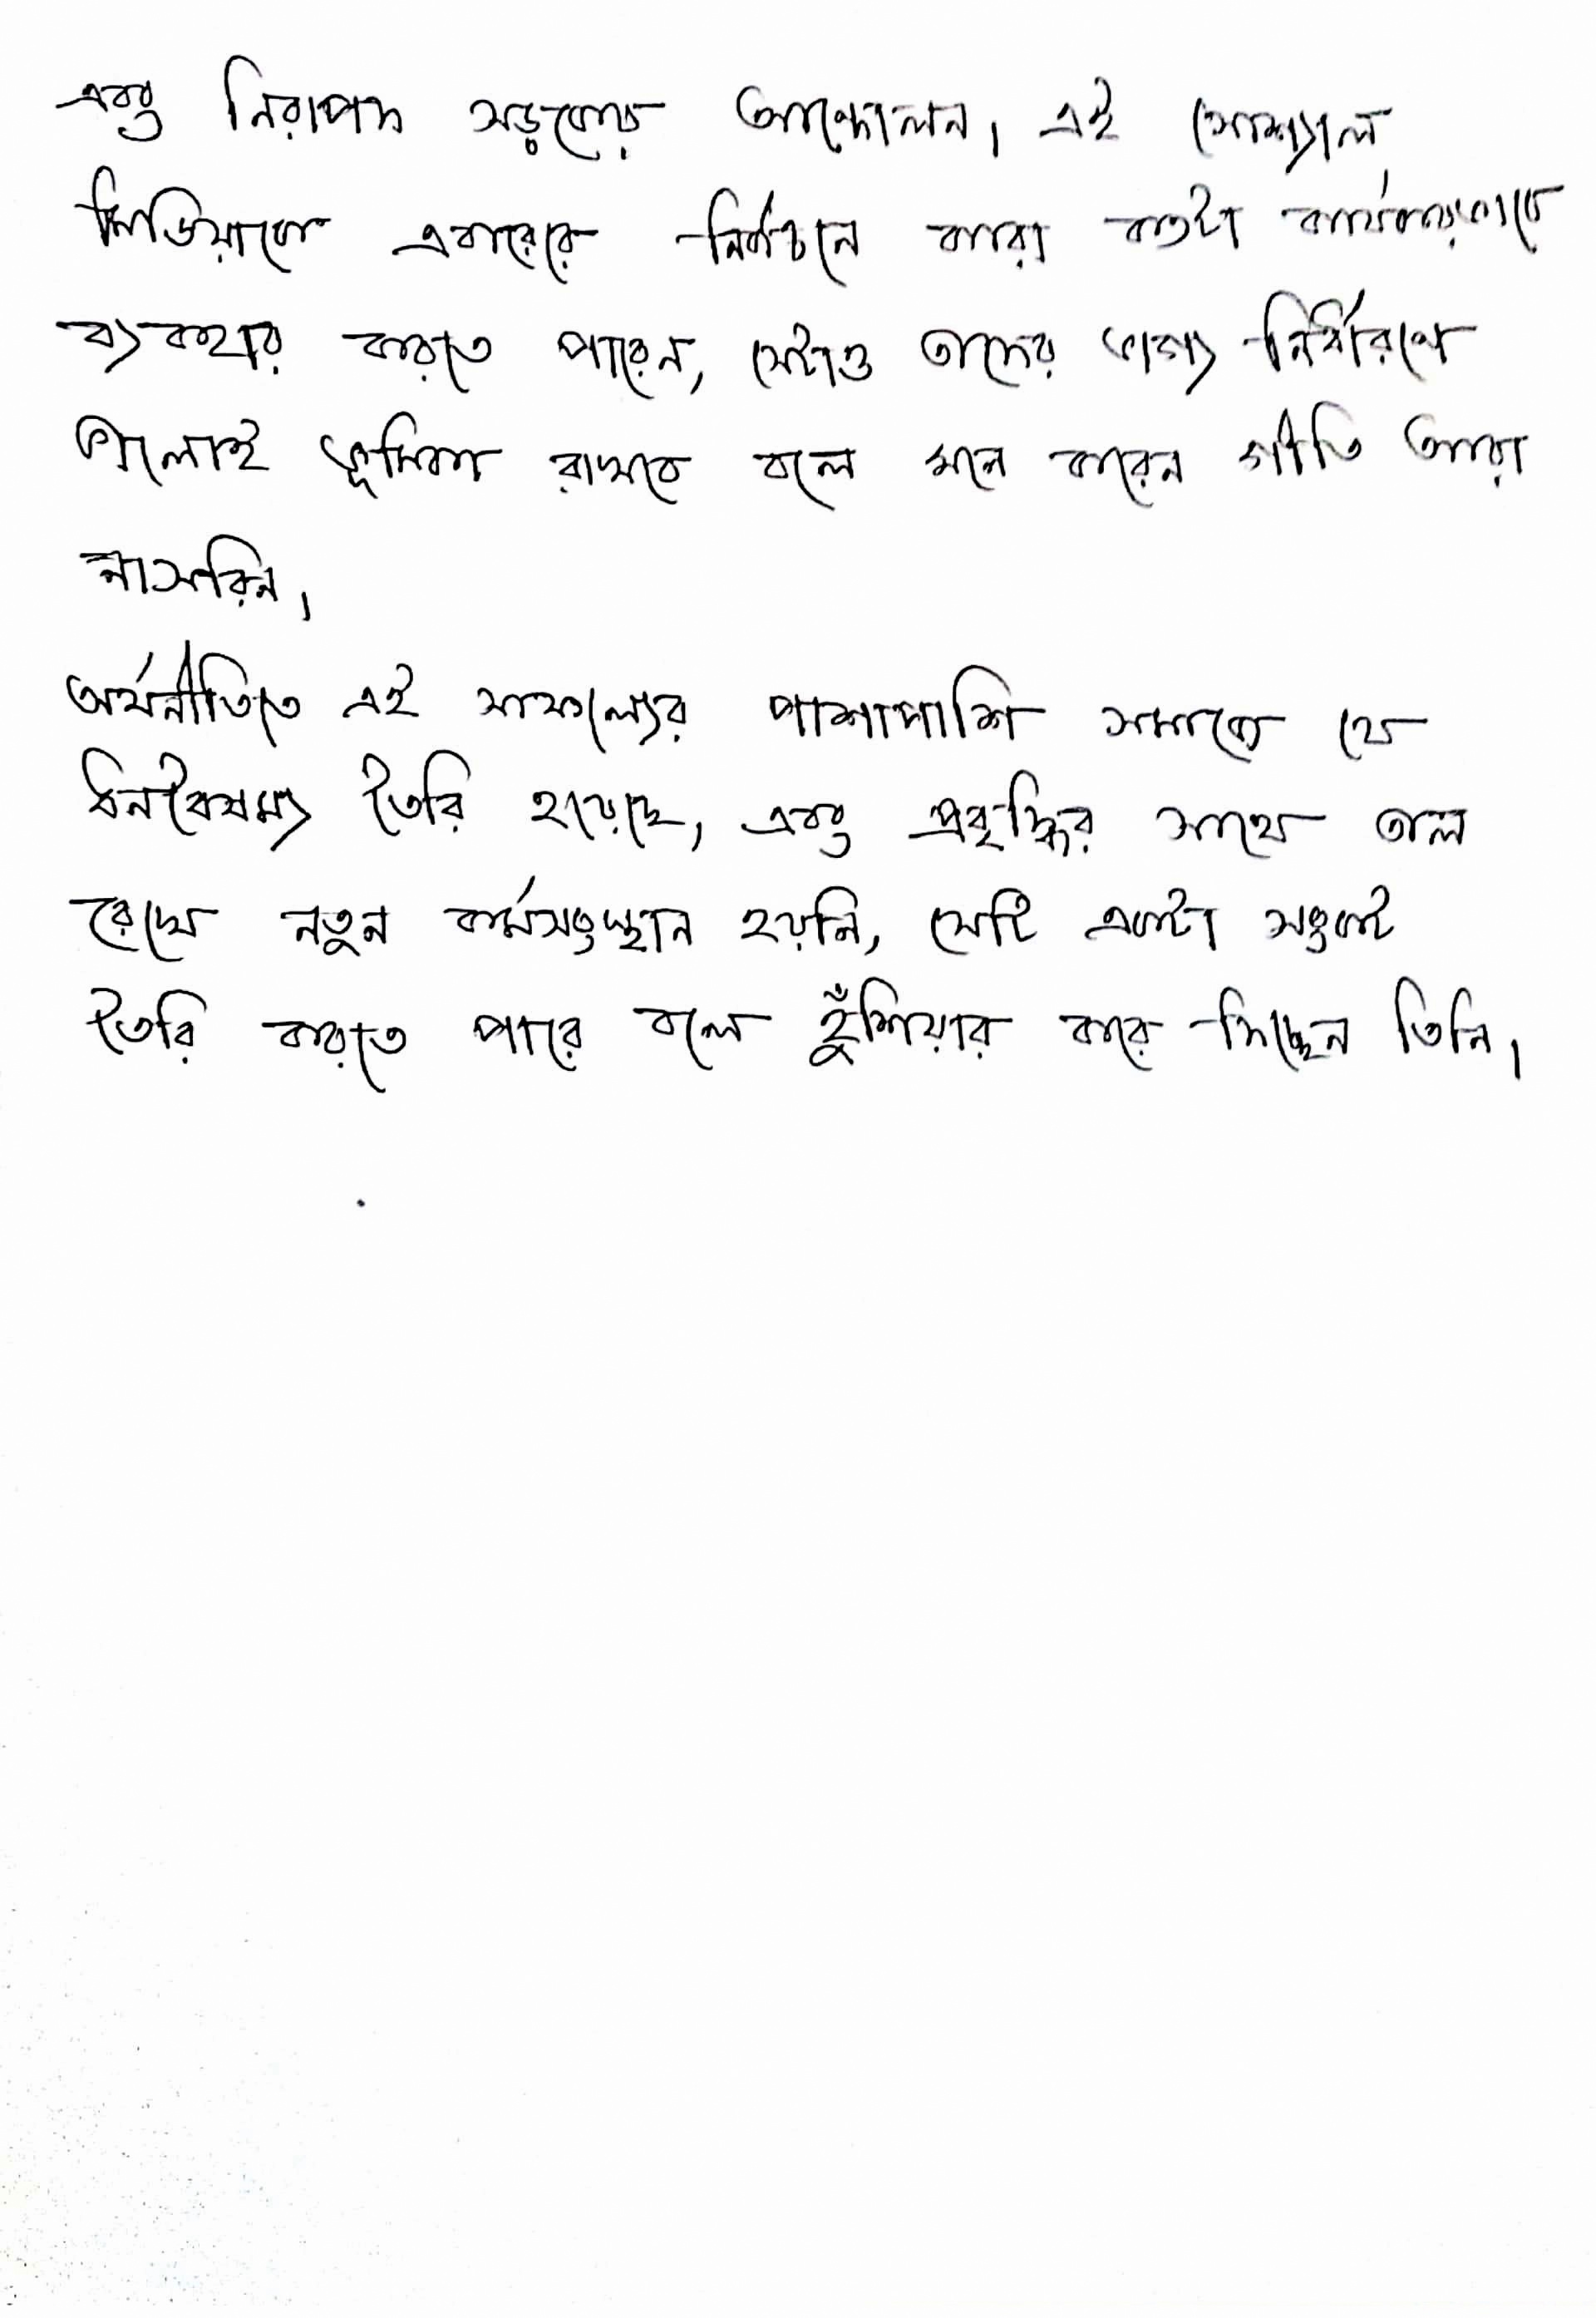 এবং নিরাপদ সড়কের আন্দোলন। এই সোশ্যাল
মিডিয়াকে এবারের নির্বাচনে কারা কতটা কার্যকরভাবে
ব্যবহার করতে পারেন, সেটাও তাদের ভাগ্য নির্ধারণে
ভালোই ভূমিকা রাখবে বলে মনে করেন গীতি আরা
নাসরিন।
অর্থনীতিতে এই সাফল্যের পাশাপাশি সমাজে যে
ধনবৈষম্য তৈরি হয়েছে, এবং প্রবৃদ্ধির সাথে তাল
রেখে নতুন কর্মসংস্থান হয়নি, সেটি একটা সংকট
তৈরি করতে পারে বলে হুঁশিয়ার করে দিচ্ছেন তিনি।